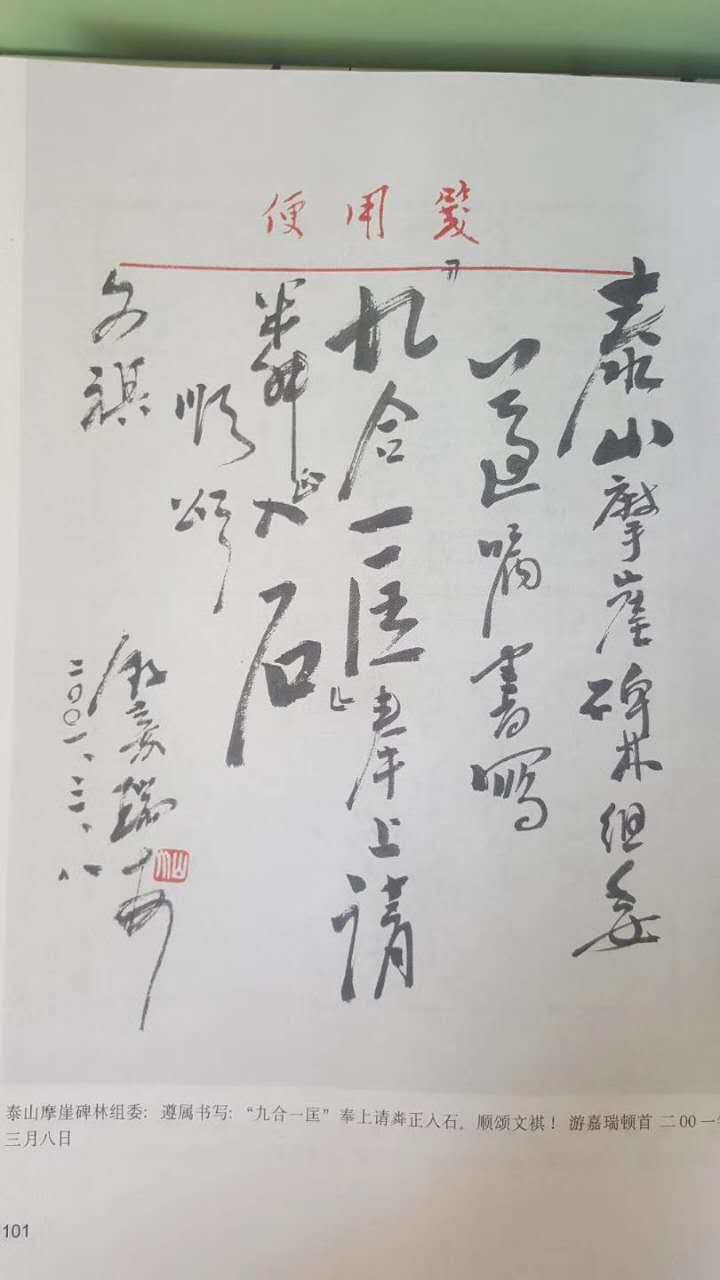 便用笺
泰山摩崖碑林组委
遵嘱书写
“九合一匡”奉上请
粪正入石
顺颂
文祺
游嘉瑞
二00一、三、八
泰山摩崖碑林组委：遵属书写：“九合一匡”奉上请粪正入石。顺颂文祺！游嘉瑞顿首 二00一
三月八日
101